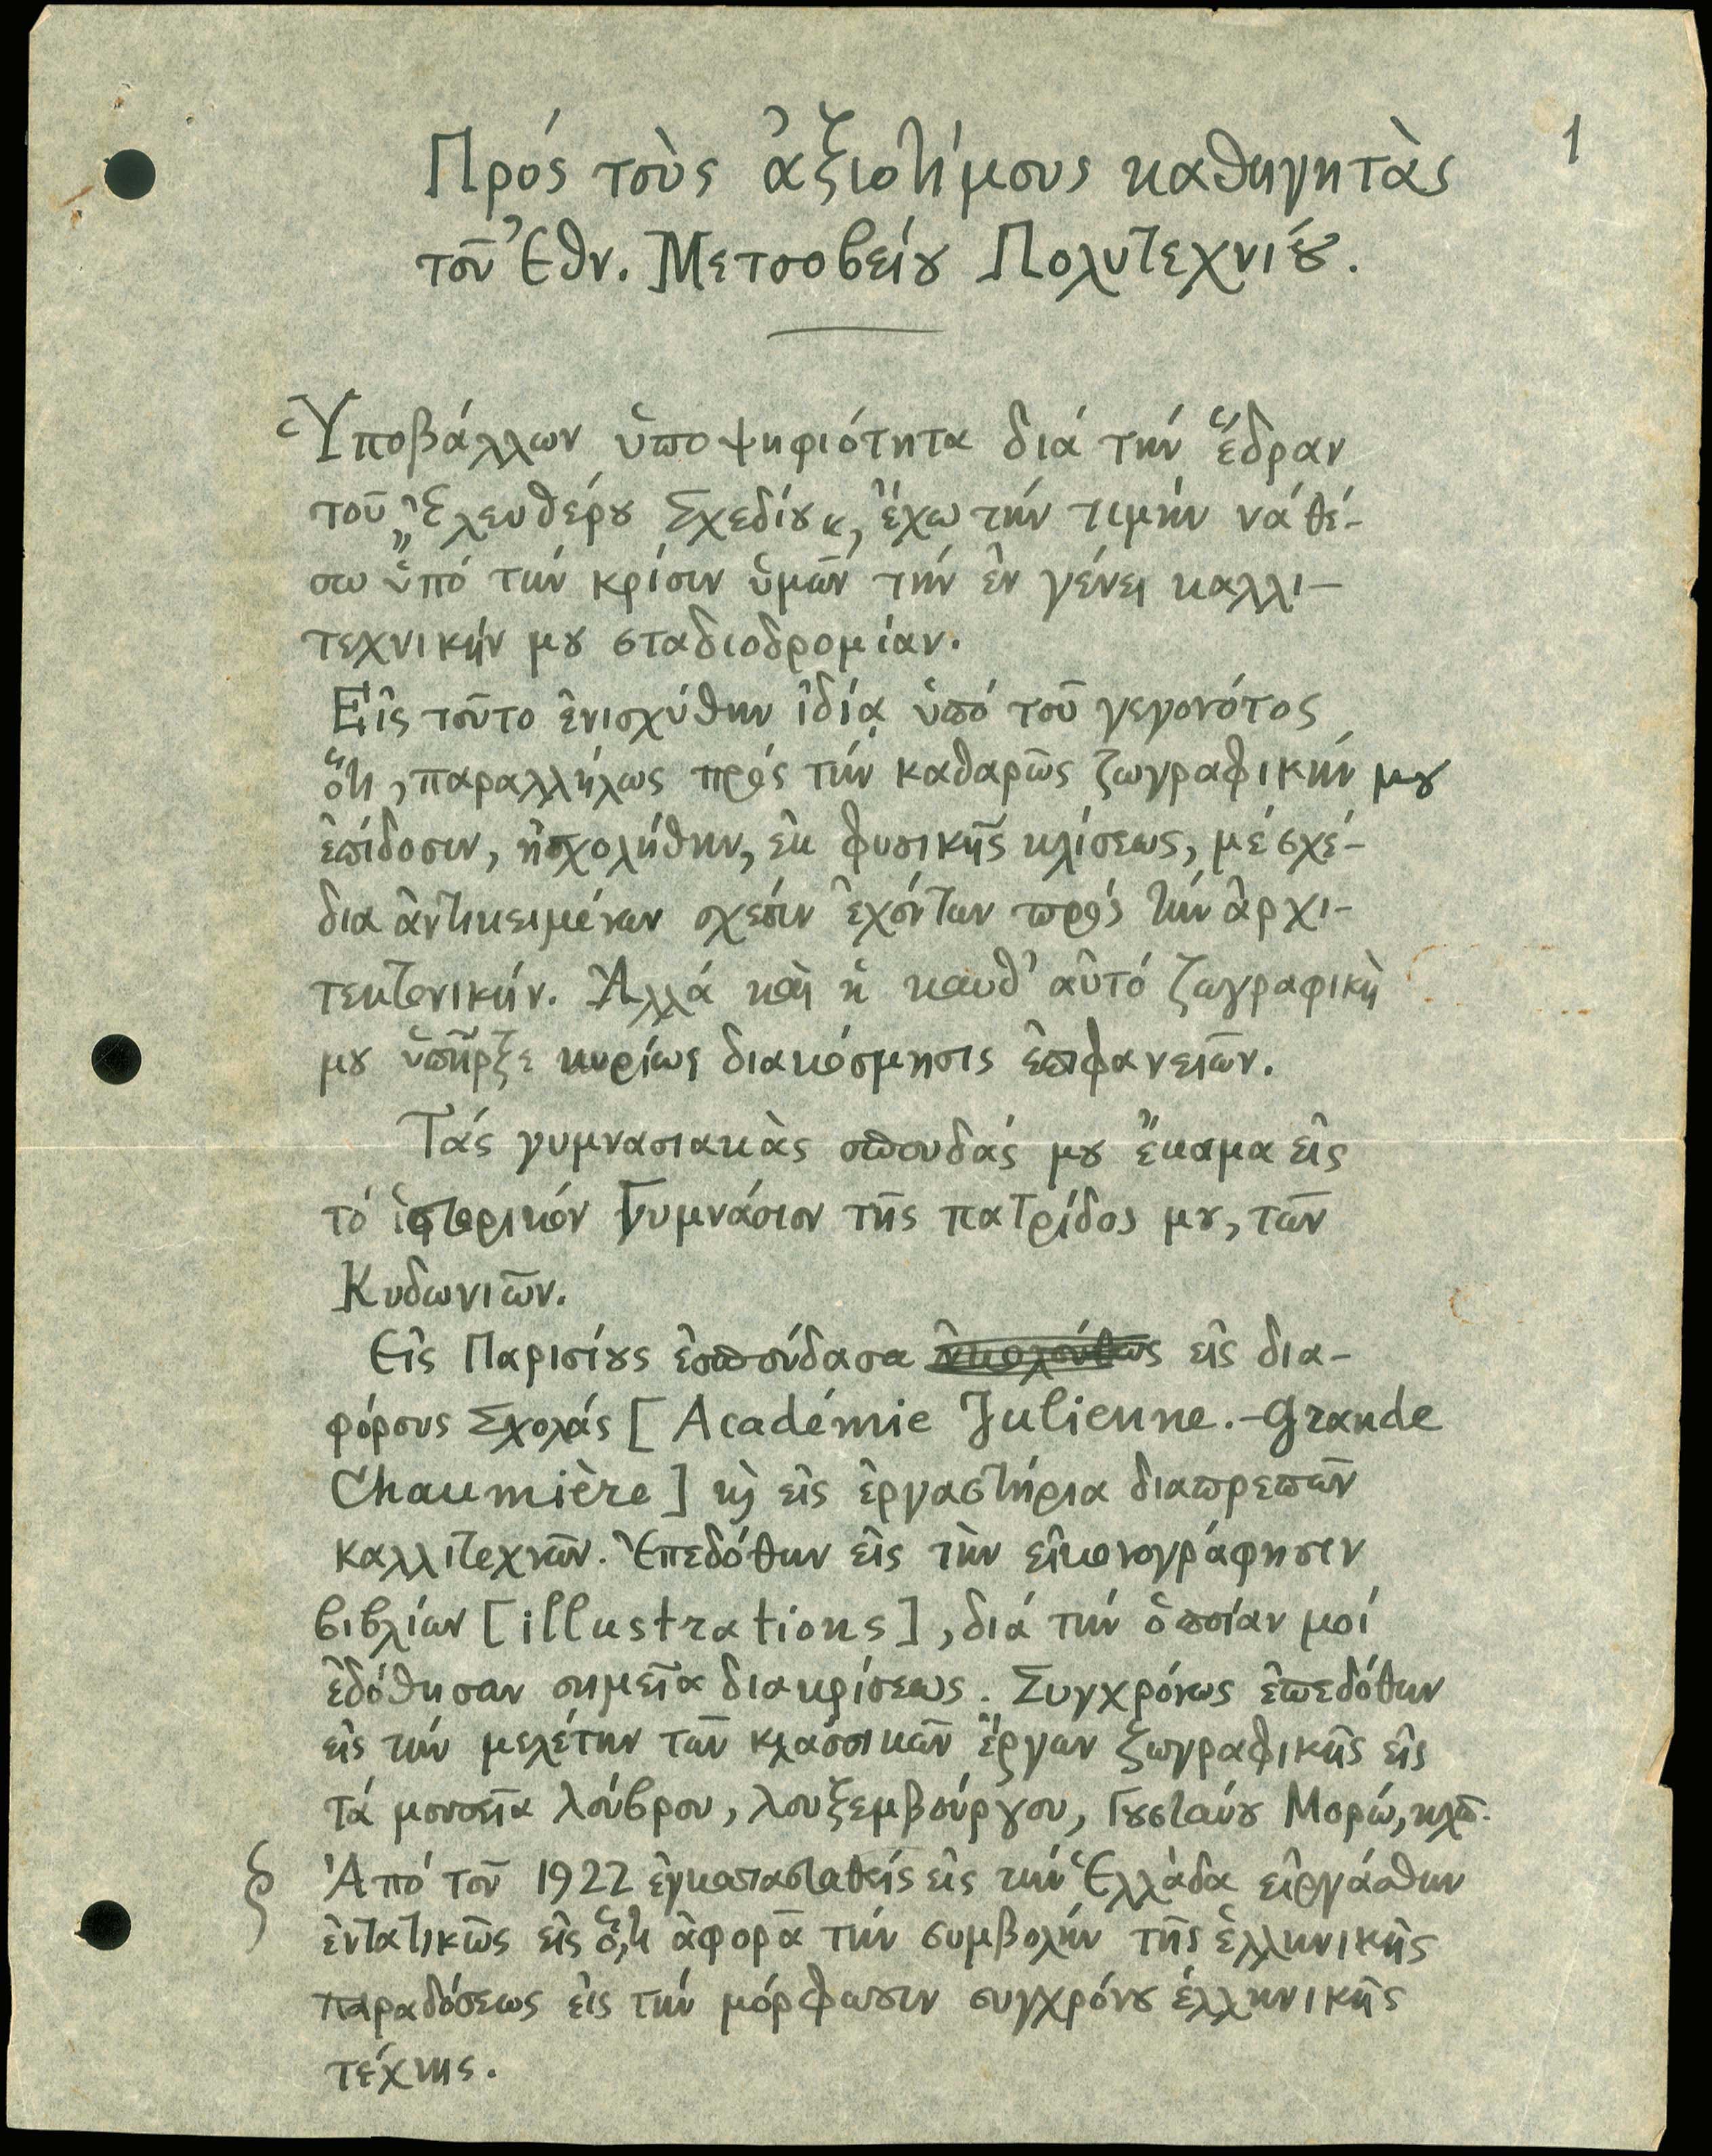 1
Πρός τοὺς ἀξιοτίμους καθηγητὰς
τοῦ Ἐθν. Μετσοβείου Πολυτεχνίου.
Ὑποβάλλων ὑποψηφιότητα διά τήν ἕδραν
τοῦ „Ἐλευθέρου Σχεδίου“, ἔχω τήν τιμήν νά θέ-
σω ὑπό τήν κρίσιν ὑμῶν τήν ἐν γένει καλλι-
τεχνικήν μου σταδιοδρομίαν.
Εἰς τοῦτο ἐνισχύθην ἰδίᾳ ὑπό τοῦ γεγονότος
ὅτι, παραλλήλως πρός τήν καθαρῶς ζωγραφικήν μου
ἐπίδοσιν, ἠσχολήθην, ἐκ φυσικῆς κλίσεως, μέ σχέ-
δια ἀντικειμένων σχέσιν ἐχόντων πρός τήν ἀρχι-
τεκτονικήν. Ἀλλά καὶ ἡ καυθ’ αὐτό ζωγραφικὴ
μου ὑπῆρξε κυρίως διακόσμησις ἐπιφανειῶν.
Τάς γυμνασιακὰς σπουδάς μου ἔκαμα εἰς
τό ἱστορικόν Γυμνάσιον τῆς πατρίδος μου, τῶν
Κυδωνιῶν.
Εἰς Παρισίους ἐσπούδασα εἰς δια-
φόρους Σχολάς [Académie Julienne.-Grande
Chaumière] ϗ εἰς ἐργαστήρια διαπρεπῶν
καλλιτεχνῶν. Ἐπεδόθην εἰς τὴν εἰκονογράφησιν
βιβλίων [illustrations], διά τήν ὁποίαν μοί
ἐδόθησαν σημεῖα διακρίσεως. Συγχρόνως ἐπεδόθην
εἰς τήν μελέτην τῶν κλασσικῶν ἔργων ζωγραφικῆς εἰς
τά μουσεῖα Λούβρου, Λουξεμβούργου, Γουσταύου Μορώ, κλπ.
Ἀπό τοῦ 1922 ἐγκατασταθείς εἰς τήν Ἑλλάδα εἰργάσθην
ἐντατικῶς εἰς ὅ,τι ἀφορᾶ τήν συμβολήν τῆς ἑλληνικῆς
παραδόσεως εἰς τήν μόρφωσιν συγχρόνου ἑλληνικῆς
τέχνης.